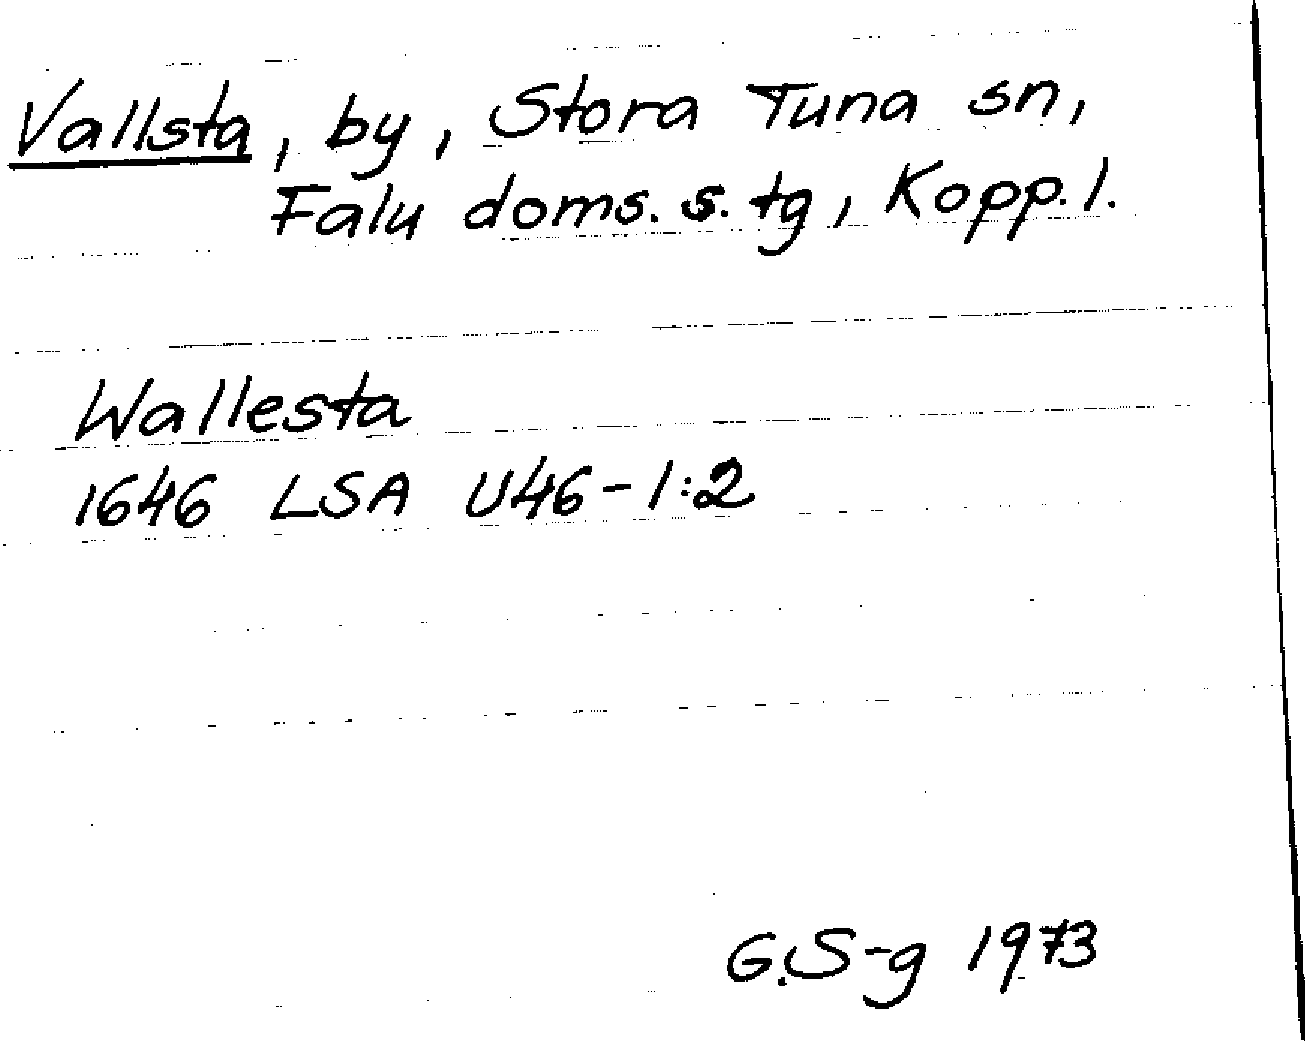 Vallsta, by, Stora Tuna sn,
Falu doms. s. tg, Kopp. l.
Wallesta
1646 LSA U46-1:2
G.S-g 1973